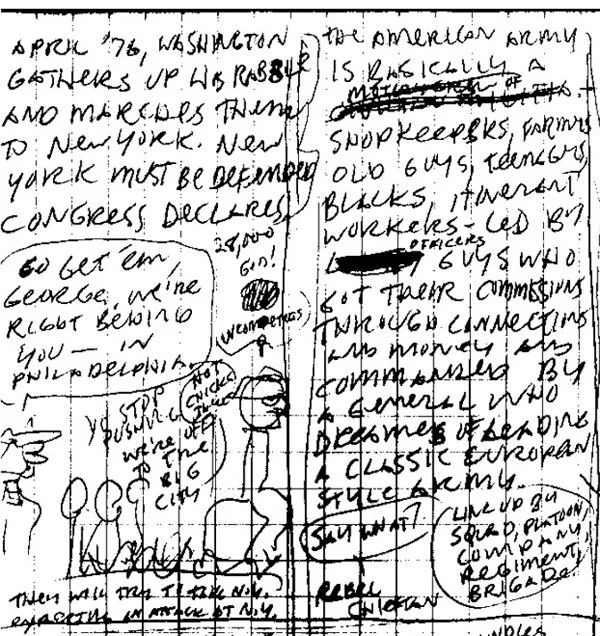 APRIL '76, WASHINGTON
GATHERS UP HIS RABBLE
AND MARCHES THEM
TO NEW YORK. NEW
YORK MUST BE DEFENDED
CONGRESS DECLARES.
GO GET 'EM,
GEORGE, WE'RE
RIGHT BEHIND
YOU — IN
PHILADELPHIA.
28,000
GOD!
STOP
PUSHING
WE'RE OFF
TO THE
BIG
CITY
NOT
THEY WILL TRY TO TAKE N.Y.
EXPECTING AN ATTACK AT N.Y.
THE AMERICAN ARMY
IS BASICALLY A
MOTLEY CREW OF
SHOPKEEPERS, FARMERS
OLD GUYS, TEENAGERS,
BLACKS, ITINERANT
WORKERS - LED BY
OFFICERS
GUYS WHO
GOT THEIR COMMISSIONS
THROUGH CONNECTIONS
AND MONEY AND
COMMANDED BY
A GENERAL WHO
DREAMES OF LEADING
A CLASSIC EUROPEAN
STYLE ARMY.
SAY WHAT?
LINE UP BY
SQUAD, PLATOON,
COMPANY,
REGIMENT,
BRIGADE.
REBEL